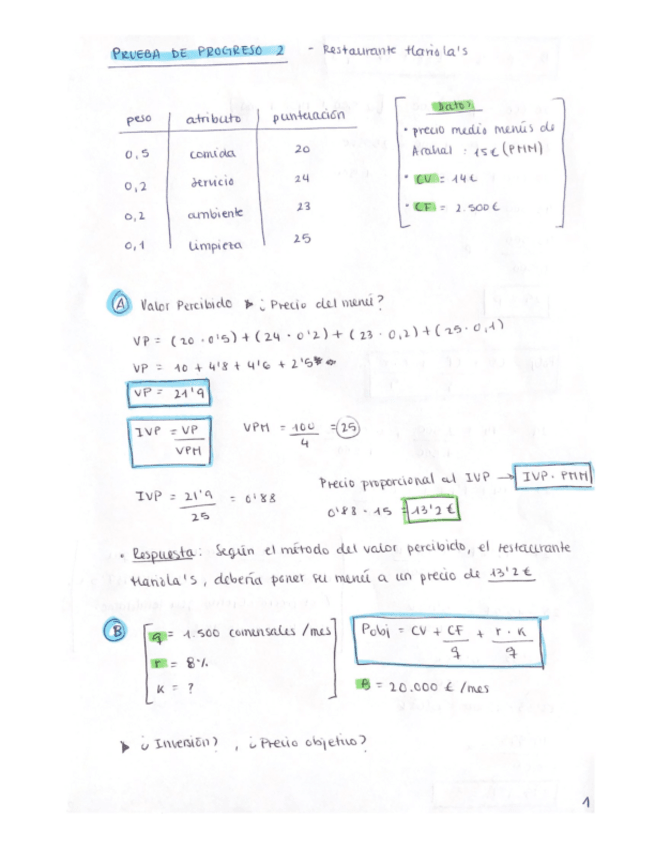 PRUEBA DE PROGRESO 2 - Restaurante Mariola's
peso atributo puntuación
0,5 comida 20
0,2 servicio 24
0,2 ambiente 23
0,1 limpieza 25
Datos
• precio medio menús de
Arahal : 15€ (PMM)
• CV = 14€
• CF = 2.500€
A Valor Percibido ➤ ¿Precio del menú?
VP = (20 · 0'5) + (24 · 0'2) + (23 · 0,2) + (25 · 0,1)
VP = 10 + 4'8 + 4'6 + 2'5
VP = 21'9
IVP = VP / VPM
VPM = 100 / 4 = 25
IVP = 21'9 / 25 = 0'88
Precio proporcional al IVP → IVP · PMM
0'88 · 15 = 13'2 €
• Respuesta: Según el método del valor percibido, el restaurante
Mariola's, debería poner su menú a un precio de 13'2 €
B q = 1.500 comensales /mes
r = 8%
K = ?
Pobj = CV + CF / q + r · K / q
B = 20.000 € /mes
➤ ¿Inversión? , ¿Precio objetivo?
1